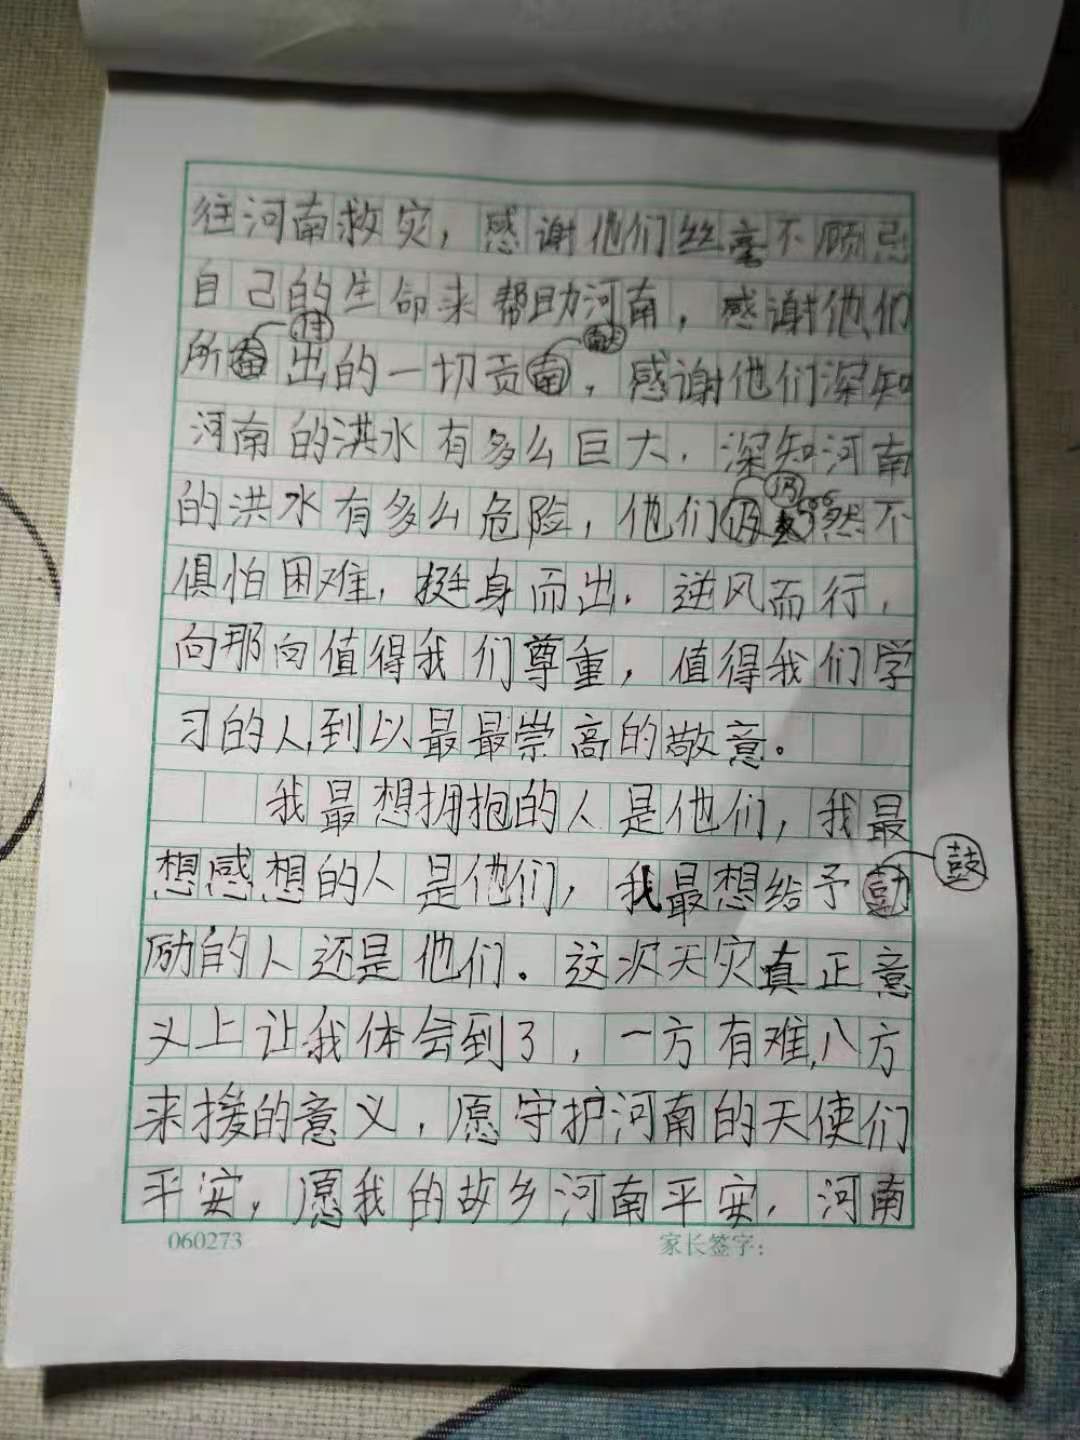 往河南救灾，感谢他们丝毫不顾忌
自己的生命来帮助河南，感谢他们
所付出的一切贡献，感谢他们深知
河南的洪水有多么巨大，深知河南
的洪水有多么危险，他们仍然不
惧怕困难，挺身而出，逆风而行，
向那向值得我们尊重，值得我们学
习的人，到以最最崇高的敬意。
我最想拥抱的人是他们，我最
想感想的人是他们，我最想给予鼓
励的人还是他们。这次天灾真正意
义上让我体会到了，一方有难，八方
来援的意义，愿守护河南的天使们
平安，愿我的故乡河南平安，河南
060273
家长签字：